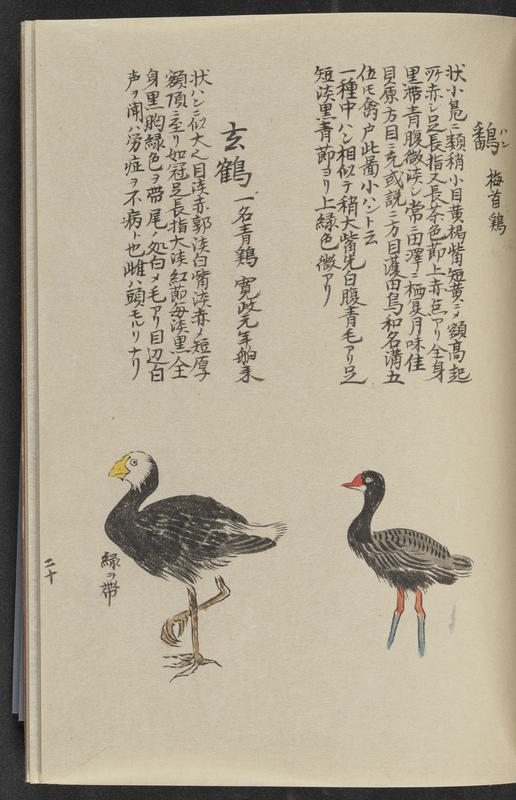 鷭 ハン 梅首鶏
状小鳧ニ類稍小目黄褐嘴短黄ニ〆額高起
所赤シ足長指又長茶色節上赤点アリ全身
黒帯青腹微淡シ常ニ田澤ニ栖夏月味佳
貝原方目ニ充或説ニ方目護田鳥和名溝五
位モ禽戸此啚小ハント云
一種中ハン相似テ稍大嘴先白腹青毛アリ足
短淡黒青節ヨリ上緑色微アリ
玄鶴 一名青鶏 寛政元年舶来
状ハンニ似大〆目淡赤郭淡白嘴淡赤〆短厚
額頂ニ至リ如冠足長指大淡紅節毎淡黒全
身黒胸緑色ヲ帯尾ノ処白〆毛アリ目辺白
声ヲ聞ハ労症ヲ不病ト也雌ハ頭モルリナリ
緑ヲ帯
二十